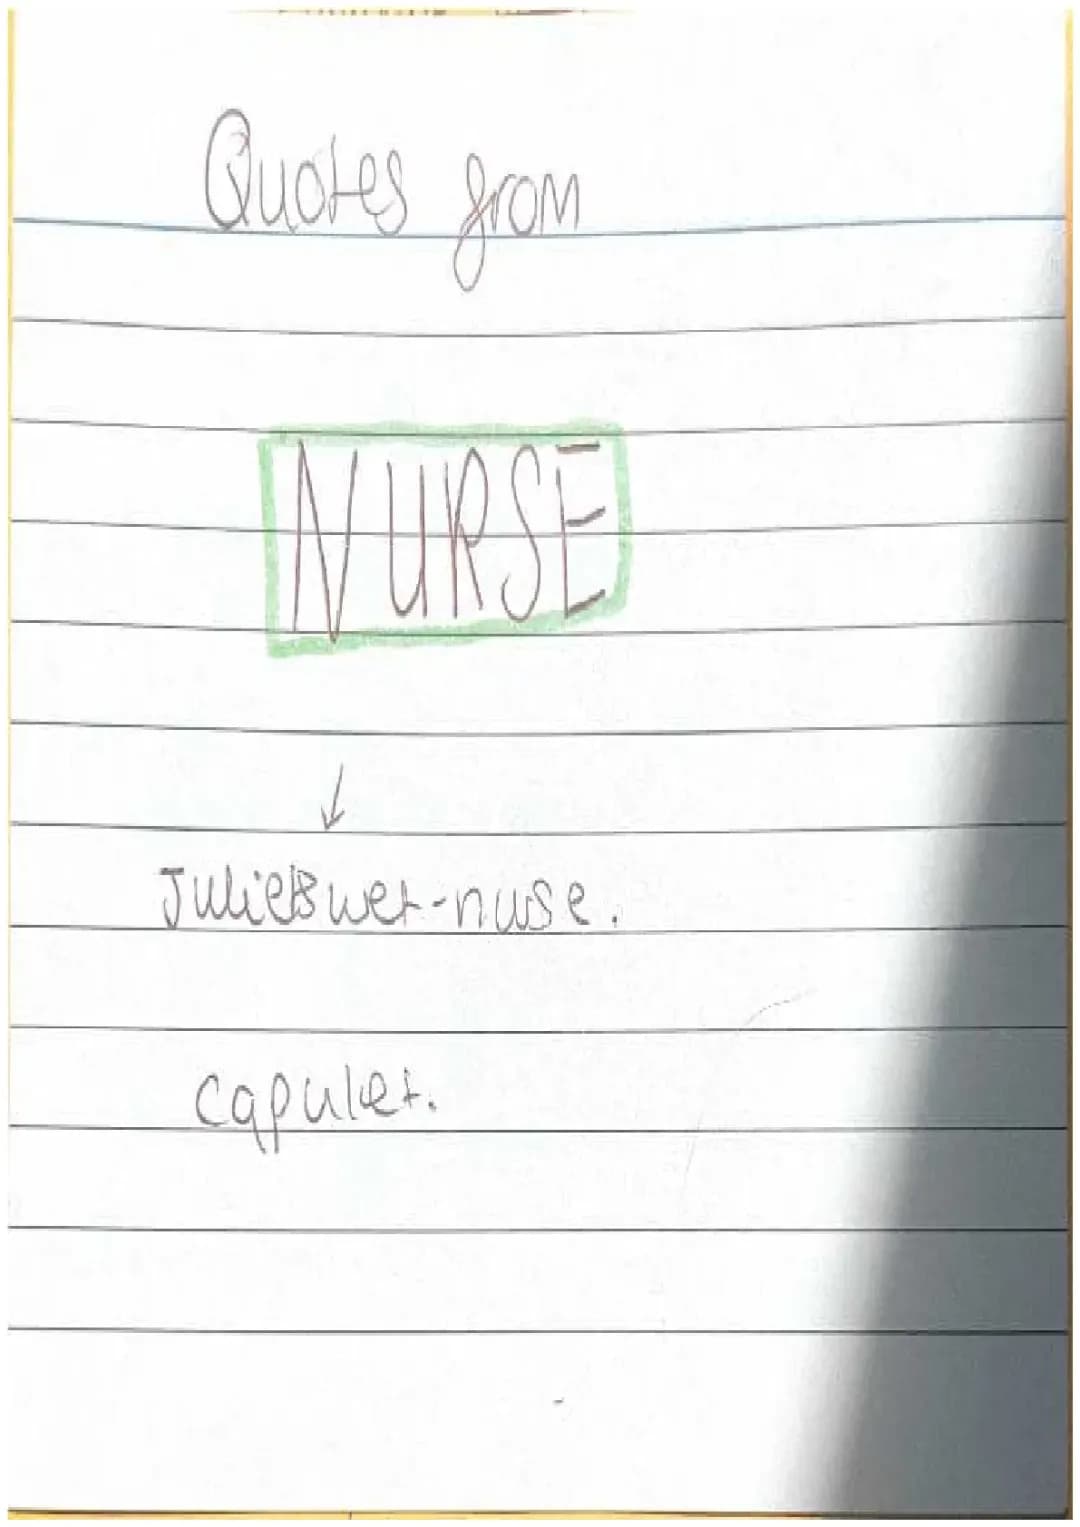 Quotes from
NURSE
↓
Juliets wet-nuse.
capulet.